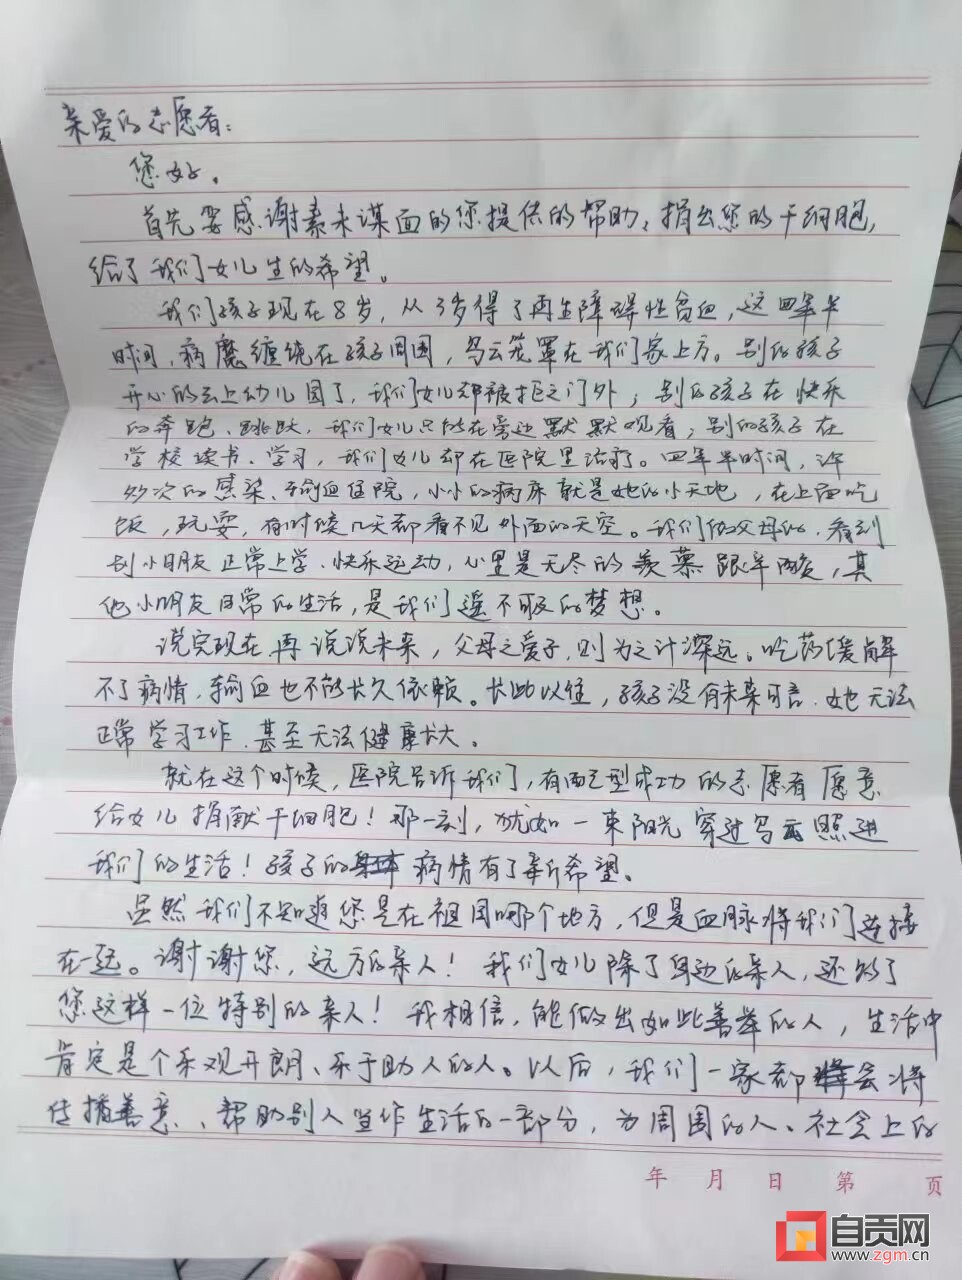 亲爱的志愿者：
您好。
首先要感谢素未谋面的您提供的帮助，捐出您的干细胞，
给了我们女儿生的希望。
我们孩子现在8岁，从3岁得了再生障碍性贫血，这四年半
时间，病魔缠绕在孩子周围，乌云笼罩在我们家上方。别的孩子
开心的去上幼儿园了，我们女儿却被拒之门外；别的孩子在快乐
的奔跑、跳跃，我们女儿只能在旁边默默观看；别的孩子在
学校读书、学习，我们女儿却在医院里治疗。四年半时间，许
多次的感染、输血住院，小小的病床就是她的小天地，在上面吃
饭，玩耍，有时候几天都看不见外面的天空。我们做父母的，看到
别小朋友正常上学、快乐运动，心里是无尽的羡慕跟辛酸，其
他小朋友日常的生活，是我们遥不可及的梦想。
说完现在再说说未来，父母之爱子，则为之计深远。吃药缓解
不了病情，输血也不能长久依赖。长此以往，孩子没有未来可言，她无法
正常学习工作，甚至无法健康长大。
就在这个时候，医院告诉我们，有配型成功的志愿者愿意
给女儿捐献干细胞！那一刻，犹如一束阳光穿过乌云照进
我们的生活！孩子的病情有了新希望。
虽然我们不知道您是在祖国哪个地方，但是血脉将我们连接
在一起。谢谢您，远方的亲人！我们女儿除了身边的亲人，还多了
您这样一位特别的亲人！我相信，能做出如此善举的人，生活中
肯定是个乐观开朗、乐于助人的人。以后，我们一家都会将
传播善意、帮助别人当作生活的一部分，为周围的人、社会上的
年 月 日 第 页
自贡网
www.zgm.cn